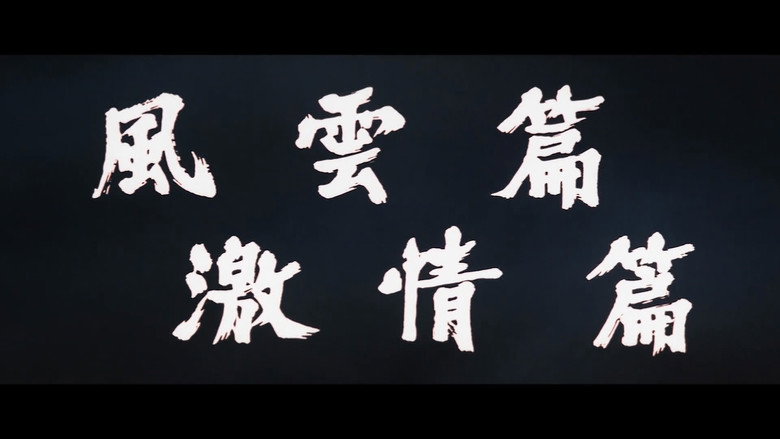 風雲篇
激情篇